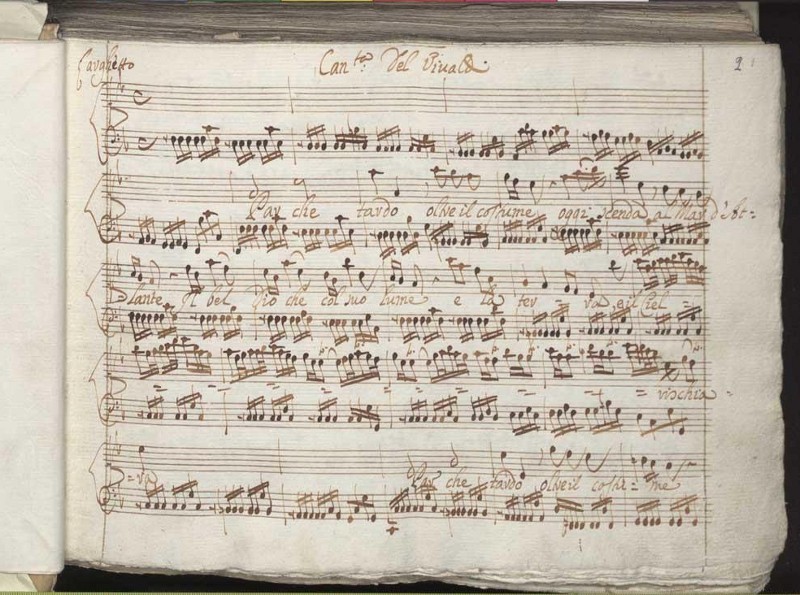 Larghetto
Can.ta Del Vivaldi
1
Par che tardo oltre il costume oggi scenda al Mar d'At=
lante Il bel Dio che col suo lume e la ter = ra e il Ciel =
= = = = = = rischia =
= ra Par che tardo oltre il costu = me